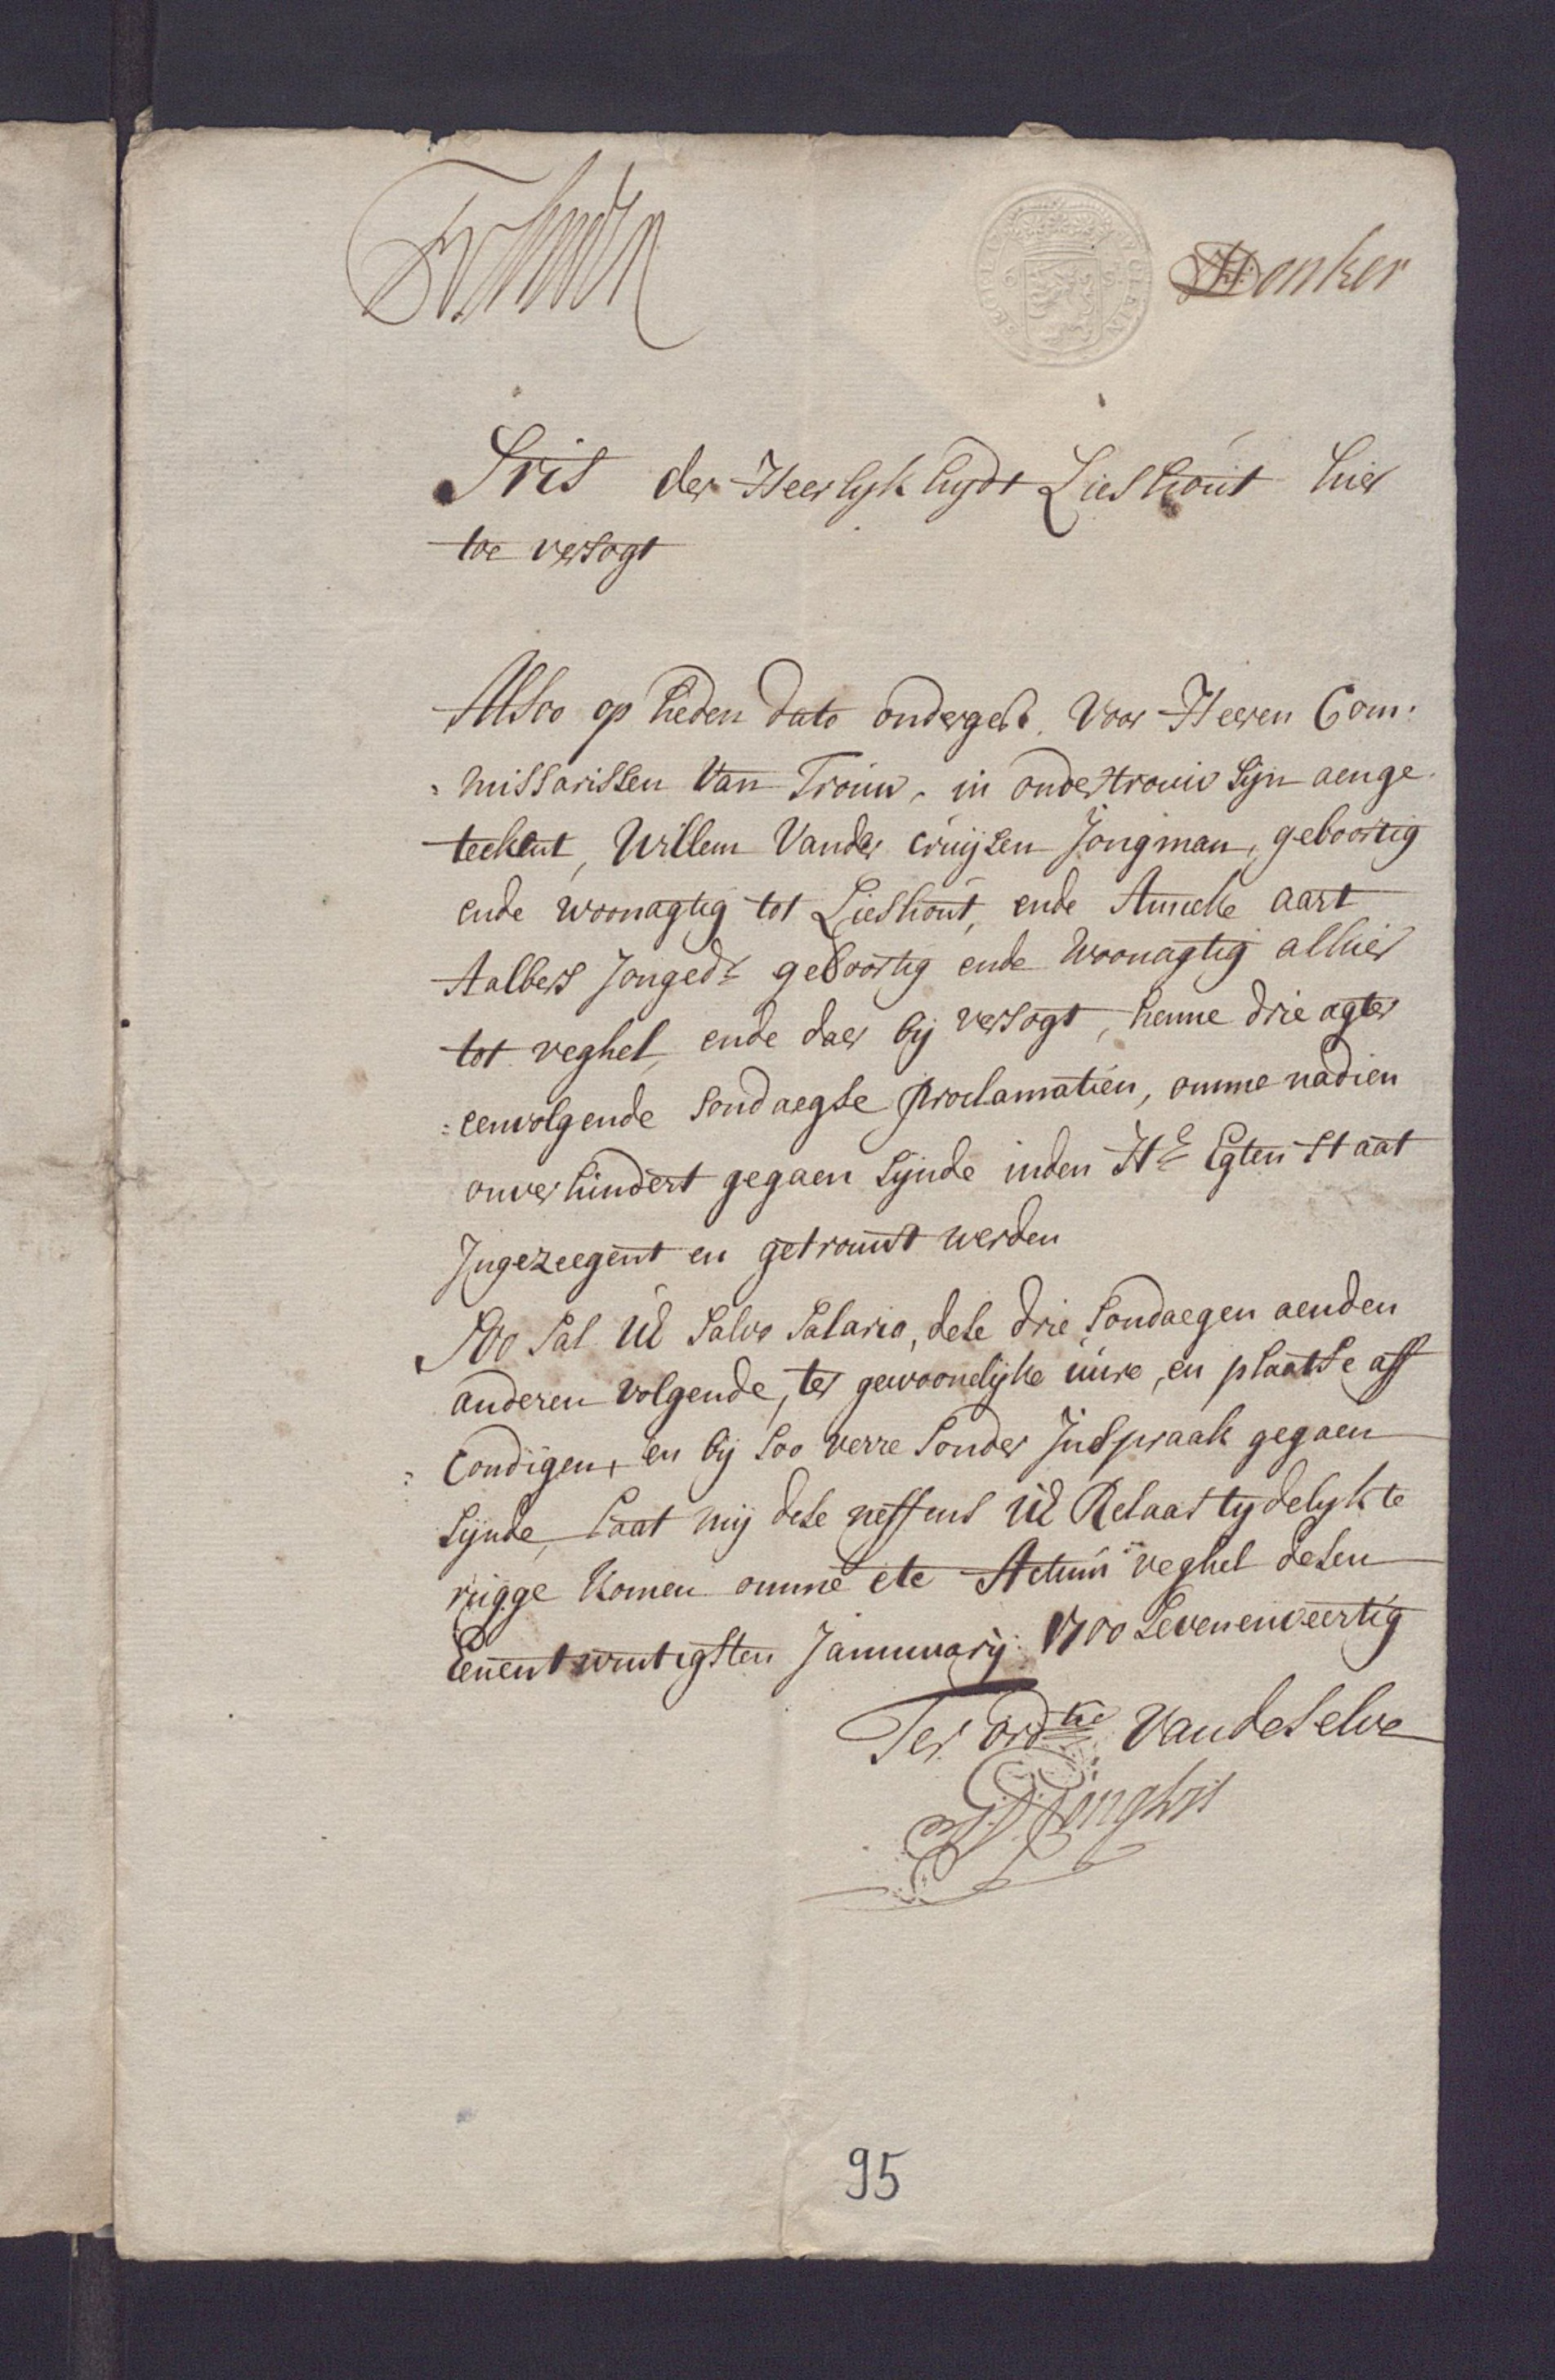 Honker
Sris der Heerlykhydt Lieshout hier
toe versogt
Alsoo op heden dato ondergest. voor Heeren Com:
=missarissen van Trouw, in ondertrouw syn aenge
teekent, Willem vander Cruijsen Jongman, geboortig
ende woonagtig tot Lieshout, ende Anneke aart
Aalbers Jongedr geboortig ende woonagtig alhier
tot veghel, ende daer by versogt, henne drie agter
=eenvolgende sondaegse proclamatien, omme nadien
onverhindert gegaen synde inden He Egten staat
Ingezeegent en getrouwt werden
Soo sal UE salvo salario, dese drie sondaegen aenden
anderen volgende, ter gewoonelyke uure, en plaatse aff
=condigen, en by soo verre sonder Inspraak gegaen
synde, laat my dese neffens UE Relaas tydelyk te
rugge komen omme etc Actum veghel desen
Eenentwintigsten Januuary 1700 sevenenveertig
Ter ordtie vandeselve
95